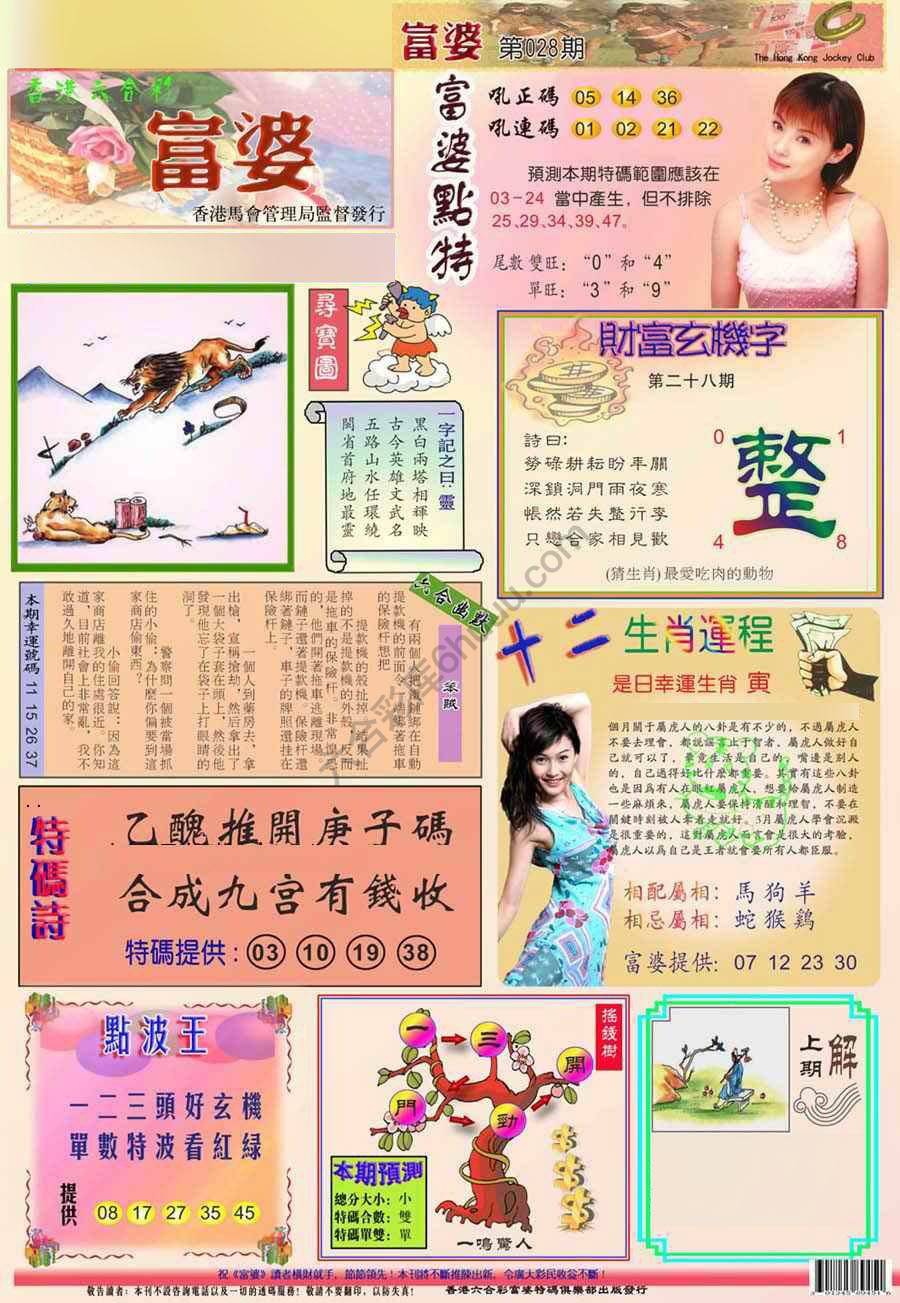 富婆 第028期
The Hong Kong Jockey Club
香港六合彩
富婆
香港馬會管理局監督發行
富婆點特
吼正碼 05 14 36
吼連碼 01 02 21 22
預測本期特碼範圍應該在
03-24 當中產生，但不排除
25、29、34、39、47。
尾數雙旺：“0”和“4”
單旺：“3”和“9”
尋寶圖
一字記之曰：靈
黑白兩塔相輝映
古今英雄文武名
五路山水任環繞
閩省首府地最靈
財富玄機字
第二十八期
詩曰：
勞碌耕耘盼年關
深鎖洞門雨夜寒
悵然若失整行李
只戀合家相見歡
0 1
整
4 8
(猜生肖)最愛吃肉的動物
六合幽默
笨賊
有兩個人把
提款機的前面
的保險杆想把
提款機的殼扯掉，結果扯
掉的不是提款機的外殼，反而
是拖車的保險杆。非常
的，他們開著拖車逃離現場，
而鏈子還著提款機。保險杆還
綁著鏈子，車子的牌照還挂在
保險杆上。
一個人到藥房去，拿
出槍，宣稱搶劫，然后拿出了
一個大袋子套在頭上，然後他
發現他忘了在袋子上打眼睛的
洞了。
警察問一個被當場抓
住的小偷：為什麼你偏要到這
家商店偷東西？
小偷回答説：因為這
家商店離我的住處很近。你知
道，目前社會上非常亂，我不
敢過久地離開自己的家。
本期幸運號碼 11 15 26 37
十二生肖運程
是日幸運生肖 寅
個月關于屬虎人的八卦是有不少的，不過屬虎人
不要去理會，都說謡言止于智者，屬虎人做好自
己就可以了，畢竟生活是自己的，嘴邊是别人
的，自己過得好比什麼都重要。其實有這些八卦
也是因爲有人在眼紅屬虎人，想要給屬虎人制造
一些麻煩來，屬虎人要保持清醒和理智，不要在
關鍵時刻被人牽着走就好。3月屬虎人學會沉澱
是很重要的，這對屬虎人而言會是很大的考驗，
屬虎人以爲自己是王者就會要所有人都臣服。
相配屬相：馬狗羊
相忌屬相：蛇猴鷄
富婆提供：07 12 23 30
特碼詩
乙醜推開庚子碼
合成九宮有錢收
特碼提供：03 10 19 38
點波王
一二三頭好玄機
單數特波看紅緑
提供 08 17 27 35 45
搖錢樹
一 三
開
門 勁
本期預測
總分大小：小
特碼合數：雙
特碼單雙：單
一鳴驚人
上期解
祝《富婆》讀者橫財就手，節節領先！本刊將不斷推陳出新，令廣大彩民收益不斷！
敬告讀者：本刊不設咨詢電話以及一切的透碼服務！敬請不要翻印，以防失真！ 香港六合彩富婆特碼俱樂部出版發行